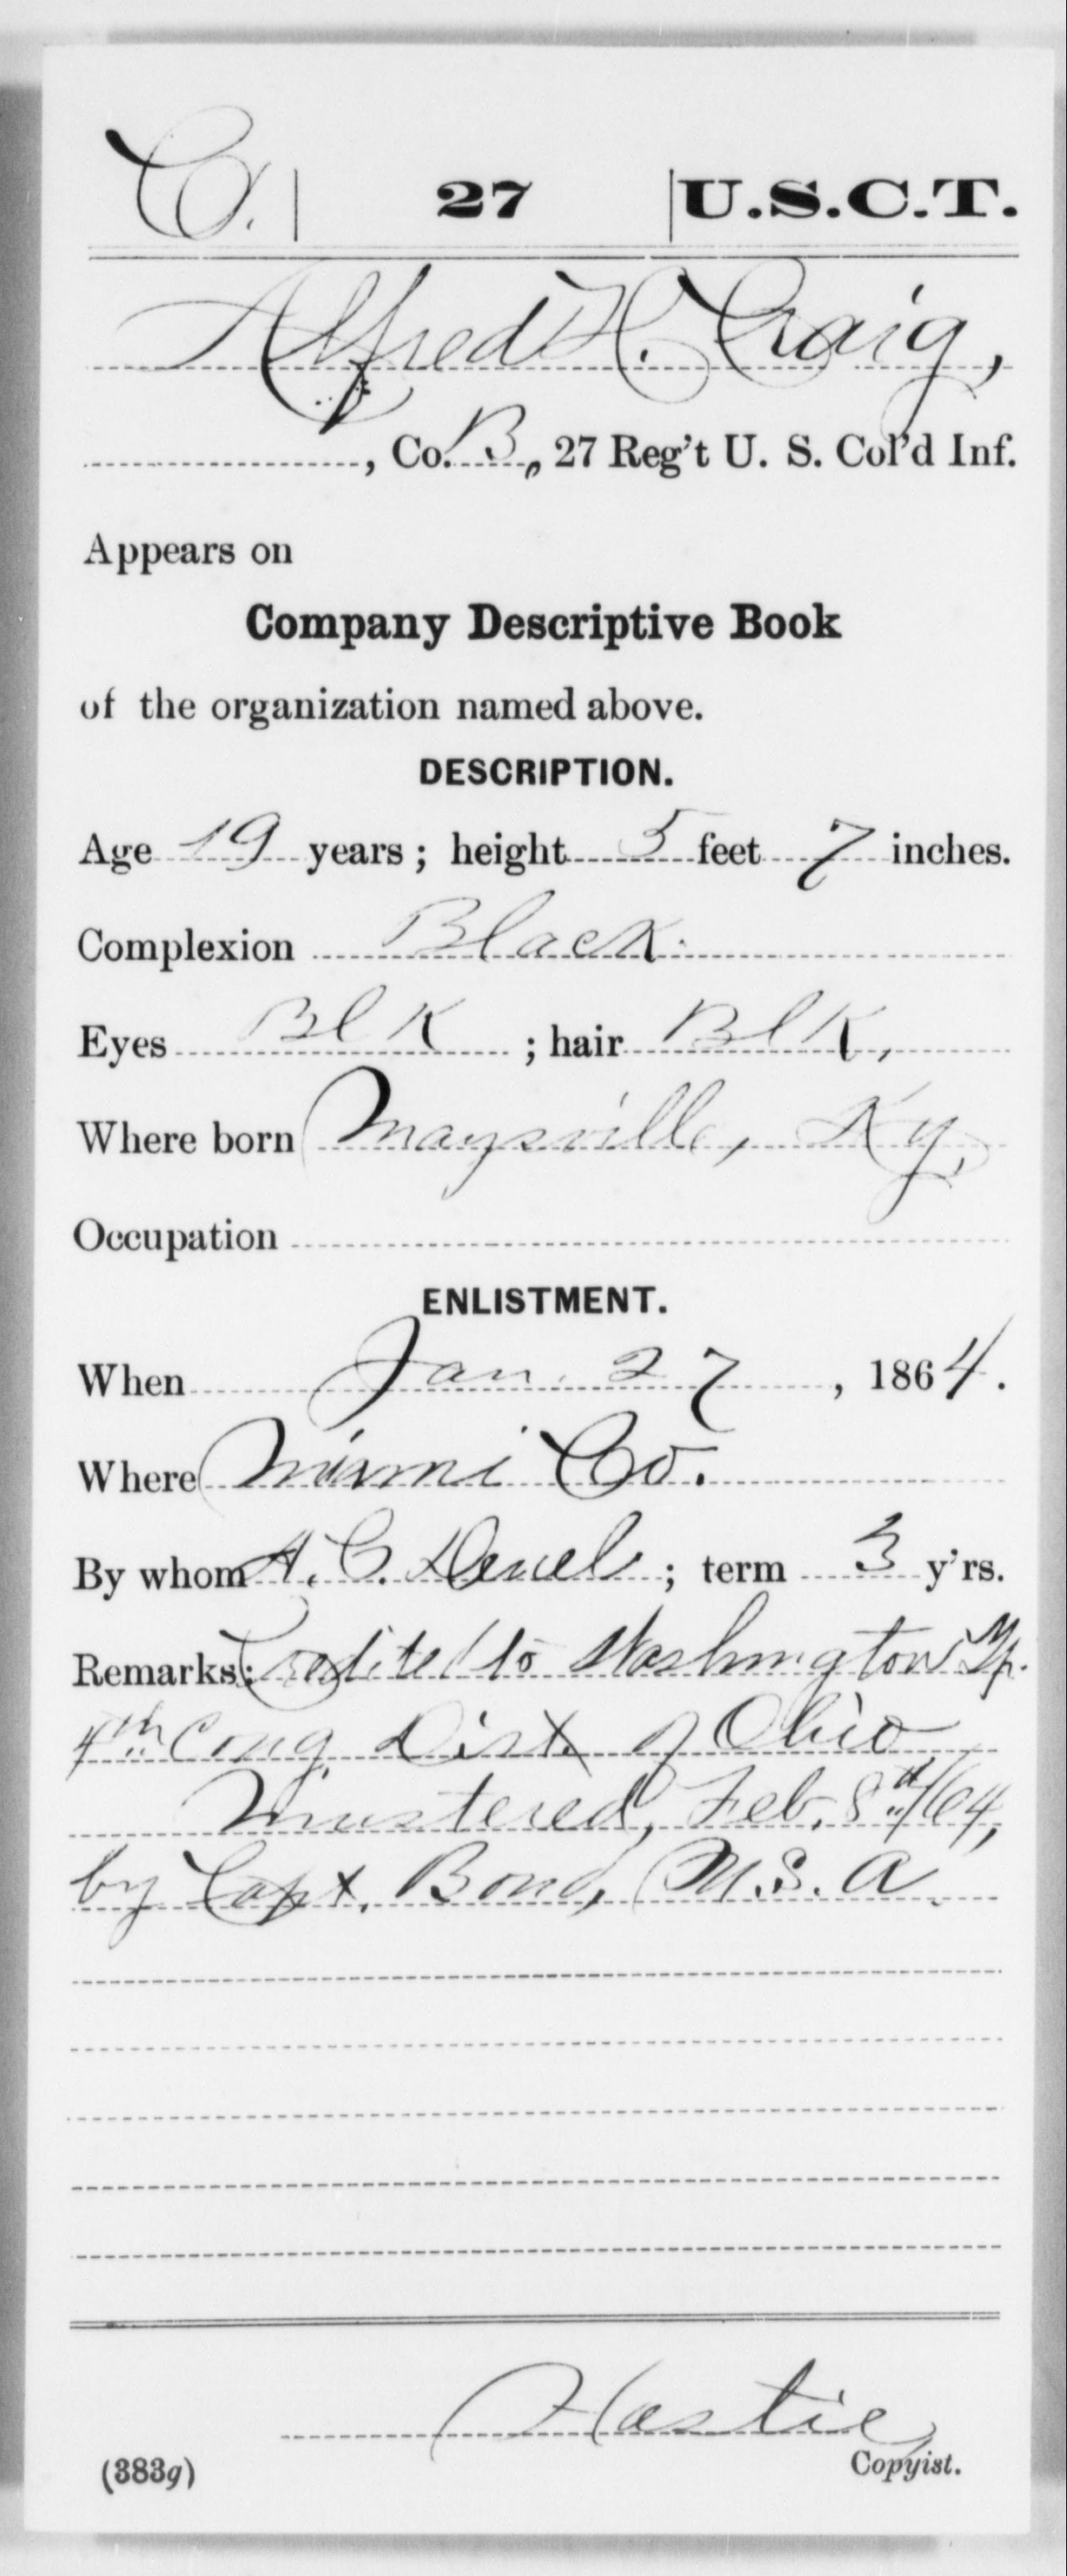 C. | 27 | U.S.C.T.
Alfred H. Craig,
, Co. B, 27 Reg't U. S. Col'd Inf.
Appears on
Company Descriptive Book
of the organization named above.
DESCRIPTION.
Age 19 years; height 5 feet 7 inches.
Complexion Black.
Eyes Blk ; hair Blk,
Where born Maysville, Ky,
Occupation
ENLISTMENT.
When Jan. 27, 1864.
Where Miami Co.
By whom A. C. Deuel; term 3 y'rs.
Remarks: Credited to Washington Tp.
4th Cong. Dist. of Ohio
Mustered, Feb. 8th/64,
by Capt. Bond, U.S.A.
Hastie
(383g) Copyist.